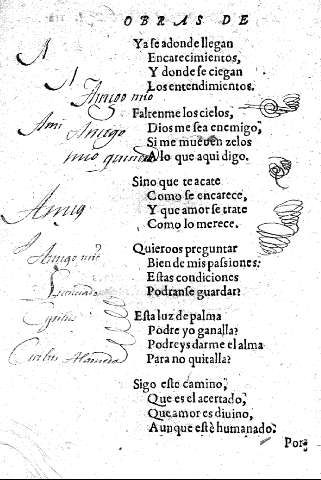 OBRAS DE
Ya se adonde llegan
Encarecimientos,
Y donde se ciegan
Los entendimientos.
Faltenme los cielos,
Dios me sea enemigo,
Si me mueuen zelos
A lo que aqui digo.
Sino que te acate
Como se encarece,
Y que amor se trate
Como lo merece.
Quieroos preguntar
Bien de mis passiones:
Estas condiciones
Podranse guardar?
Esta luz de palma
Podre yo ganalla?
Podreys darme el alma
Para no quitalla?
Sigo este camino,
Que es el acertado,
Que amor es diuino,
Aunque estè humanado.
Porq̃
A
A
Amigo mio
Ami Amigo
mio
Amig
Amigo mio
Licenciado